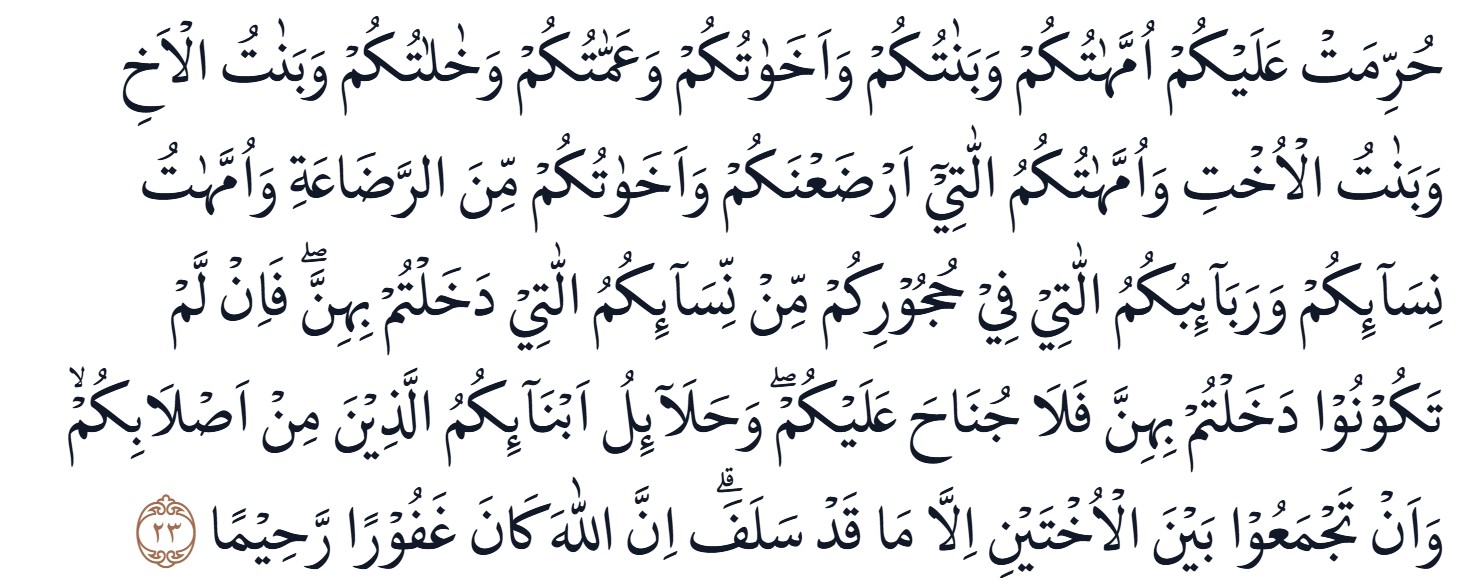 حُرِّمَتْ عَلَيْكُمْ اُمَّهٰتُكُمْ وَبَنٰتُكُمْ وَاَخَوٰتُكُمْ وَعَمّٰتُكُمْ وَخٰلٰتُكُمْ وَبَنٰتُ الْاَخِ
وَبَنٰتُ الْاُخْتِ وَاُمَّهٰتُكُمُ الّٰتِيْٓ اَرْضَعْنَكُمْ وَاَخَوٰتُكُمْ مِّنَ الرَّضَاعَةِ وَاُمَّهٰتُ
نِسَآىِٕكُمْ وَرَبَآىِٕبُكُمُ الّٰتِيْ فِيْ حُجُوْرِكُمْ مِّنْ نِّسَآىِٕكُمُ الّٰتِيْ دَخَلْتُمْ بِهِنَّۖ فَاِنْ لَّمْ
تَكُوْنُوْا دَخَلْتُمْ بِهِنَّ فَلَا جُنَاحَ عَلَيْكُمْۖ وَحَلَاۤىِٕلُ اَبْنَآىِٕكُمُ الَّذِيْنَ مِنْ اَصْلَابِكُمْۙ
وَاَنْ تَجْمَعُوْا بَيْنَ الْاُخْتَيْنِ اِلَّا مَا قَدْ سَلَفَۗ اِنَّ اللّٰهَ كَانَ غَفُوْرًا رَّحِيْمًا ٢٣